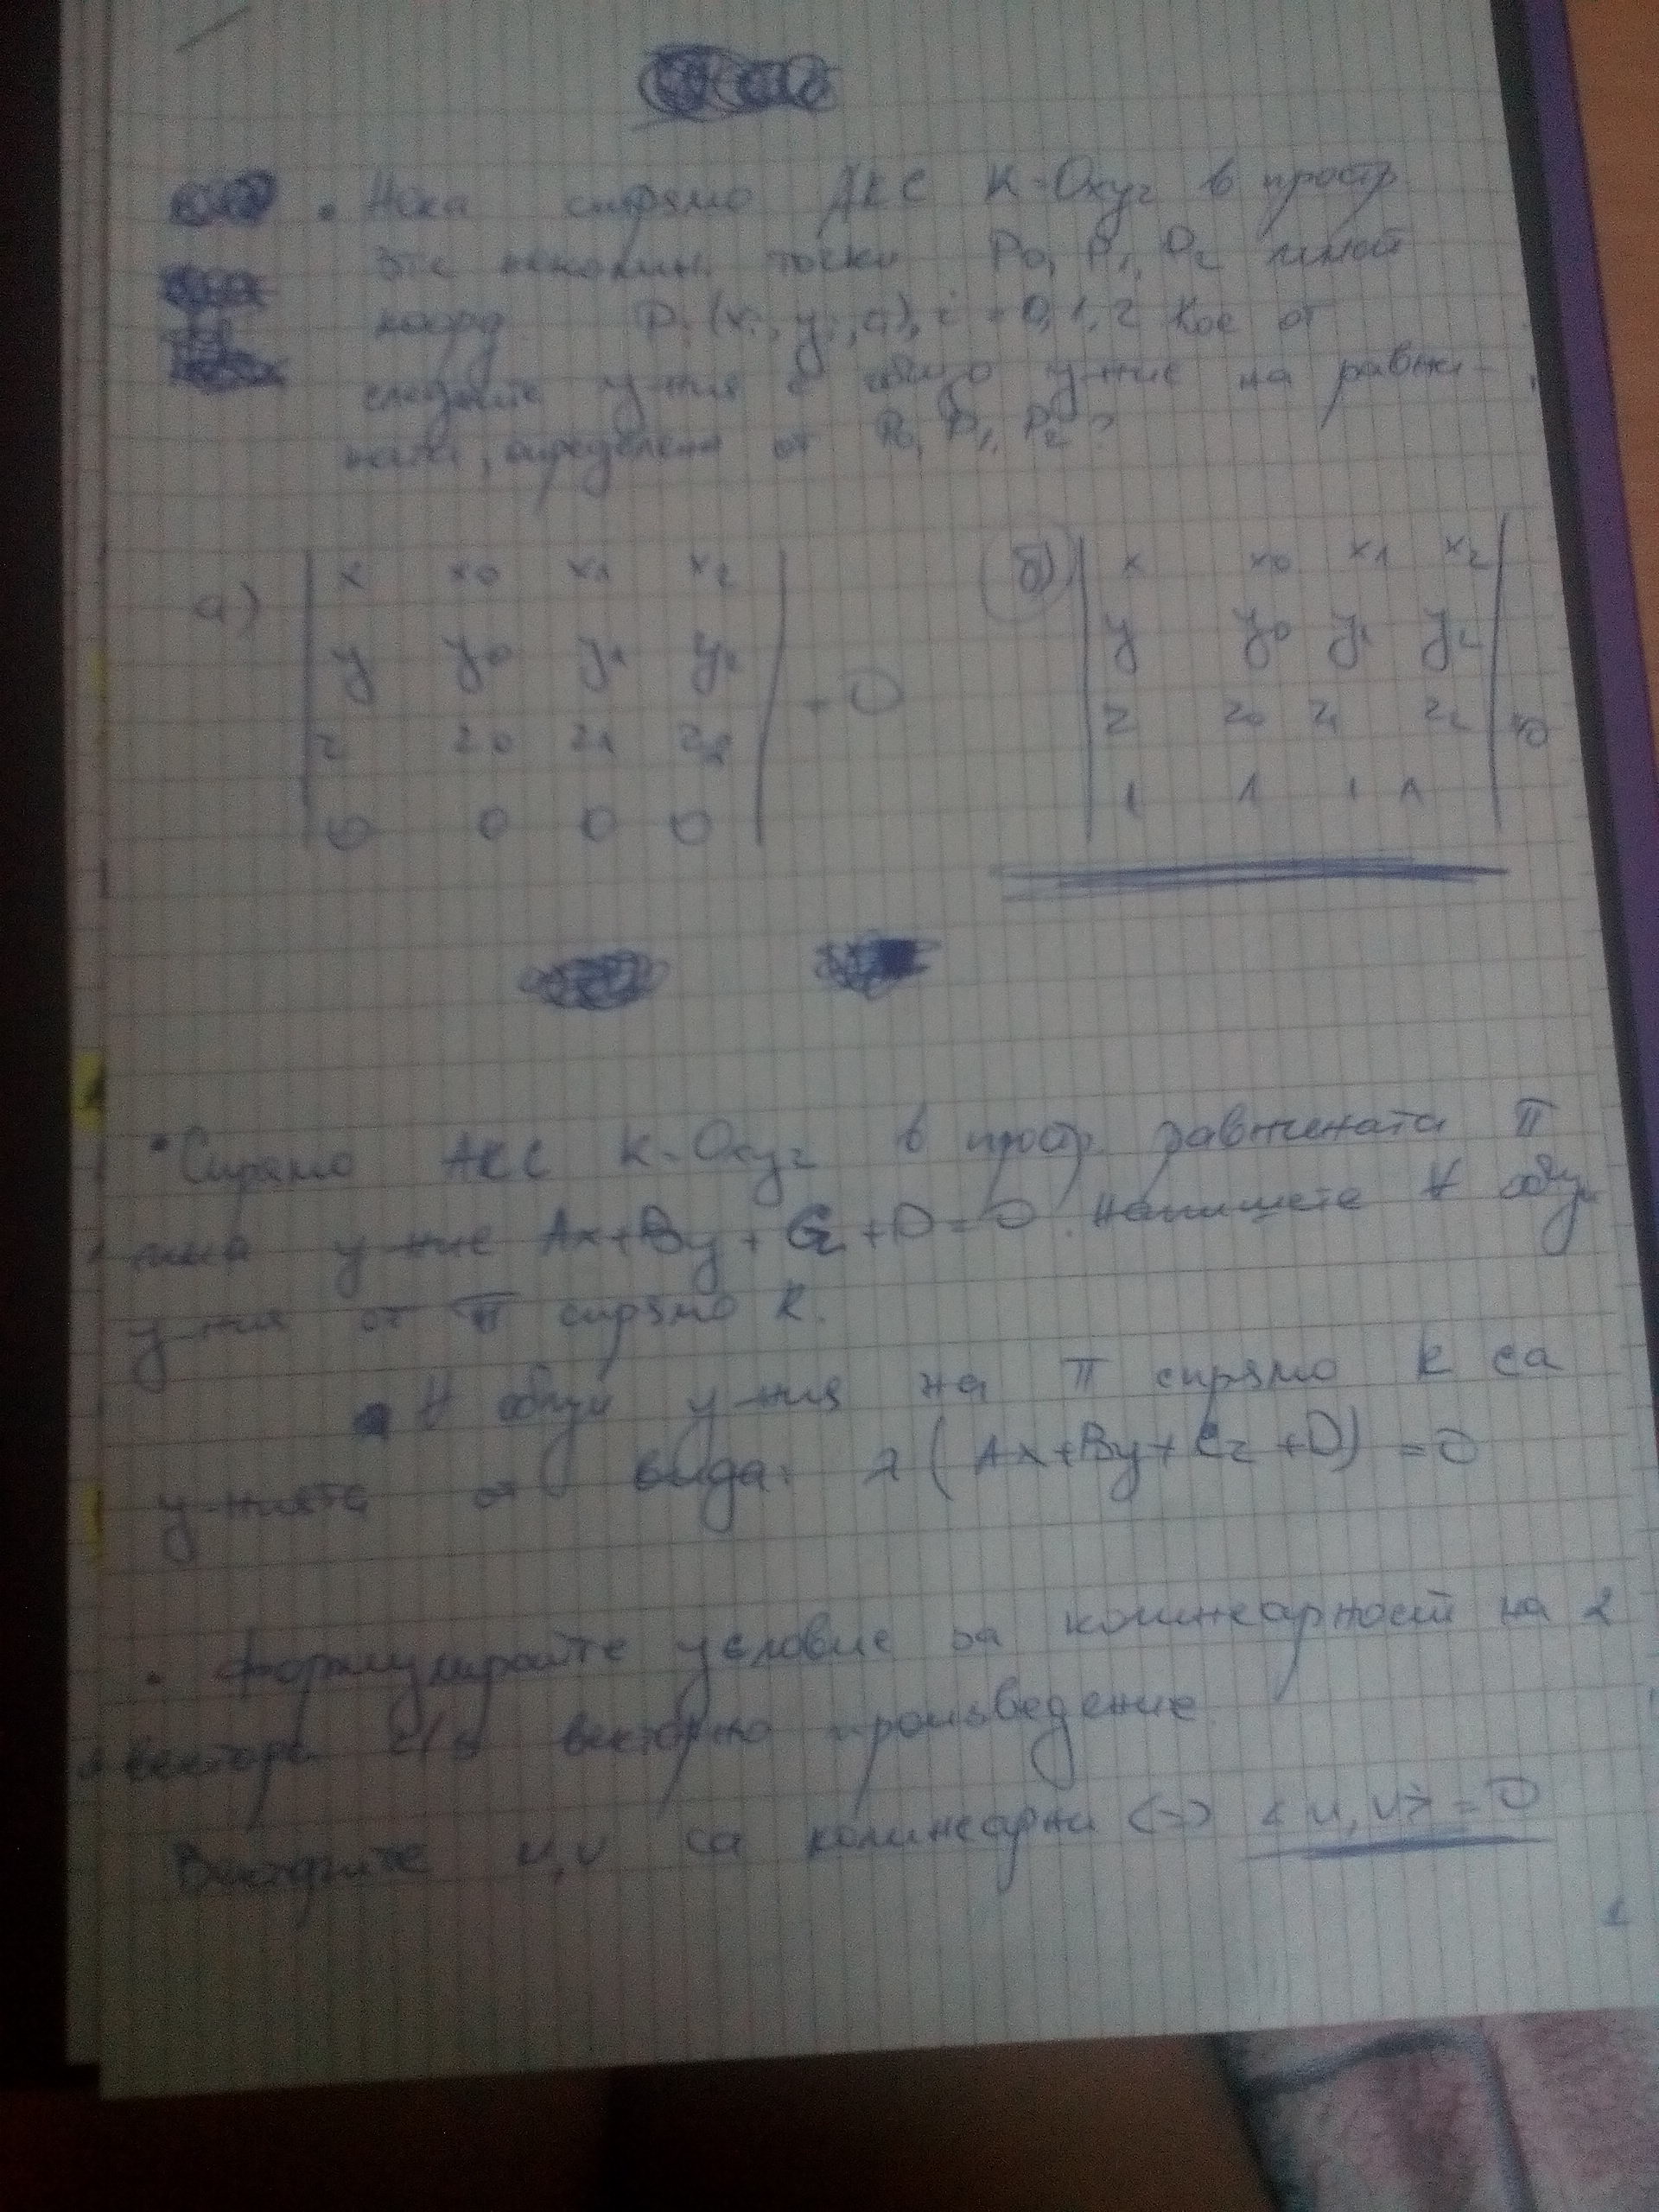 • Нека спрямо АКС K=Oxyz в простр
3те неколин. точки P0, P1, P2 имат
коорд. Pi (xi, yi, zi), i = 0, 1, 2 Кое от
следните у-ния е общо у-ние на равни-
ната, определена от P0, P1, P2?
а) | x x0 x1 x2 | б) | x x0 x1 x2 |
| y y0 y1 y2 | | y y0 y1 y2 |
| z z0 z1 z2 | = 0 | z z0 z1 z2 | =0
| 0 0 0 0 | | 1 1 1 1 |
• Спрямо АКС K=Oxyz в простр. равнината π
има у-ние Ax+By+Cz+D=0. Напишете ∀ общи
у-ния от π спрямо K.
∀ общи у-ния на π спрямо K са
у-нията от вида: λ(Ax+By+Cz+D) =0
• Формулирайте условие за колинеарност на 2
вектора ч/з векторно произведение
Векторите u,v са колинеарни <=> <u,v>=0